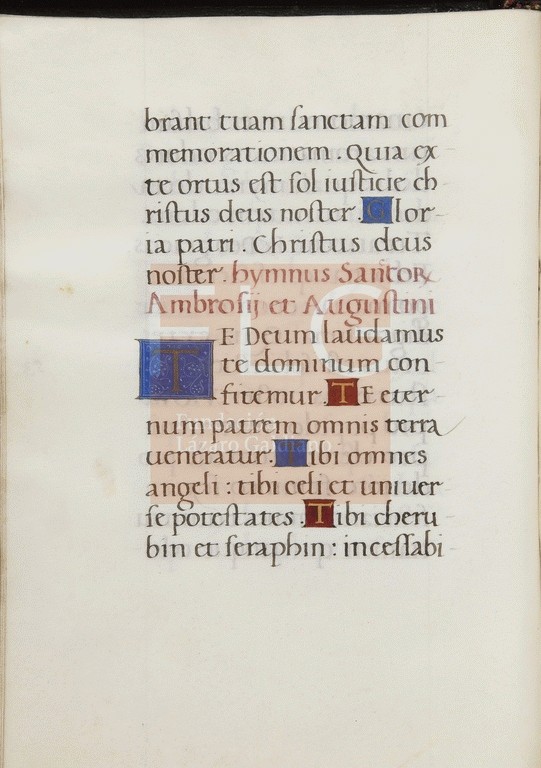 brant tuam sanctam com
memorationem. Quia ex
te ortus est sol iusticie ch
ristus deus noster. Glor-
ia patri. Christus deus
noster. hymnus Sanctor
Ambrosij et Augustini
TE Deum laudamus
te dominum con
fitemur. TE eter-
num patrem omnis terra
ueneratur. Tibi omnes
angeli: tibi celi et uniuer
se potestates. Tibi cheru
bin et seraphin: incessabi-
FLG
Fundación
Lázaro Galdiano